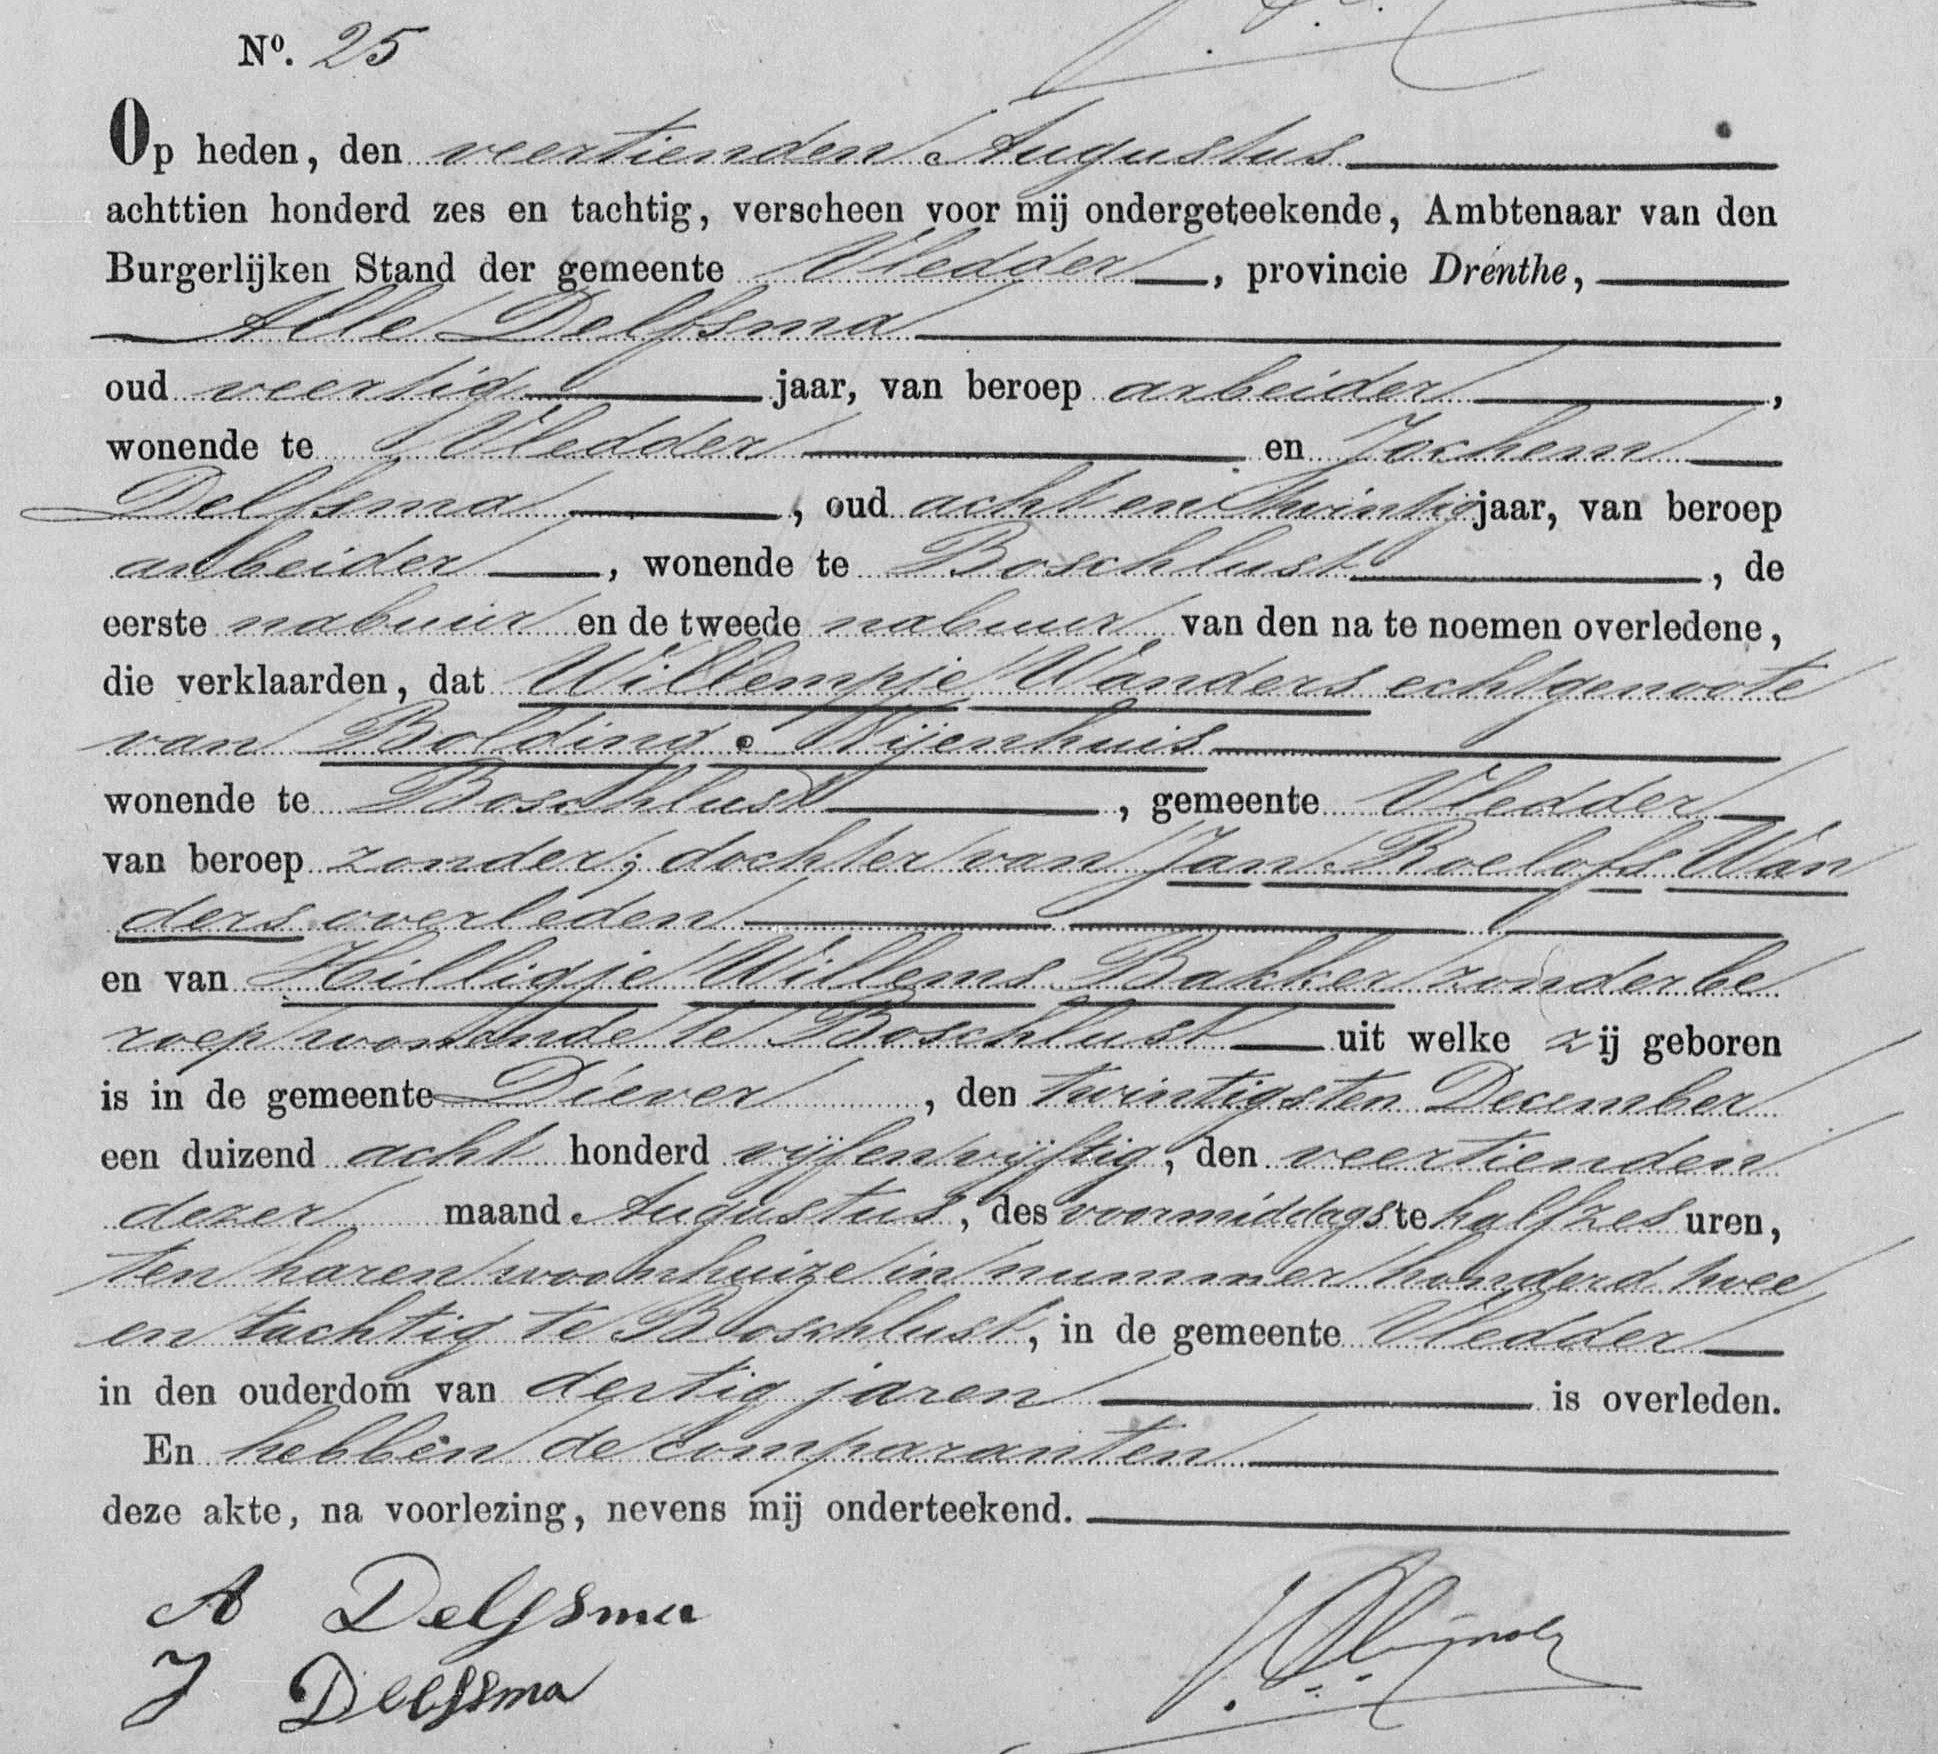 Nº. 25
Op heden, den veertienden Augustus
achttien honderd zes en tachtig, verscheen voor mij ondergeteekende, Ambtenaar van den
Burgerlijken Stand der gemeente Vledder, provincie Drenthe,
Alle Delfsma
oud veertig jaar, van beroep arbeider,
wonende te Vledder en Jochem
Delfsma, oud acht en twintig jaar, van beroep
arbeider, wonende te Boschlust, de
eerste nabuur en de tweede nabuur van den na te noemen overledene,
die verklaarden, dat Willempje Wanders echtgenoote
van Bolding Wijenhuis
wonende te Boschlust, gemeente Vledder
van beroep zonder; dochter van Jan Roelofs Wan
ders overleden
en van Hilligje Willems Bakker zonder be
roep wonende te Boschlust uit welke zij geboren
is in de gemeente Diever, den twintigsten December
een duizend acht honderd vijfenvijftig, den veertienden
dezer maand Augustus, des voormiddags te half zes uren,
ten haren woonhuize in nummer honderd twee
en tachtig te Boschlust, in de gemeente Vledder
in den ouderdom van dertig jaren is overleden.
En hebben de comparanten
deze akte, na voorlezing, nevens mij onderteekend.
A Delfsma
J Delfsma